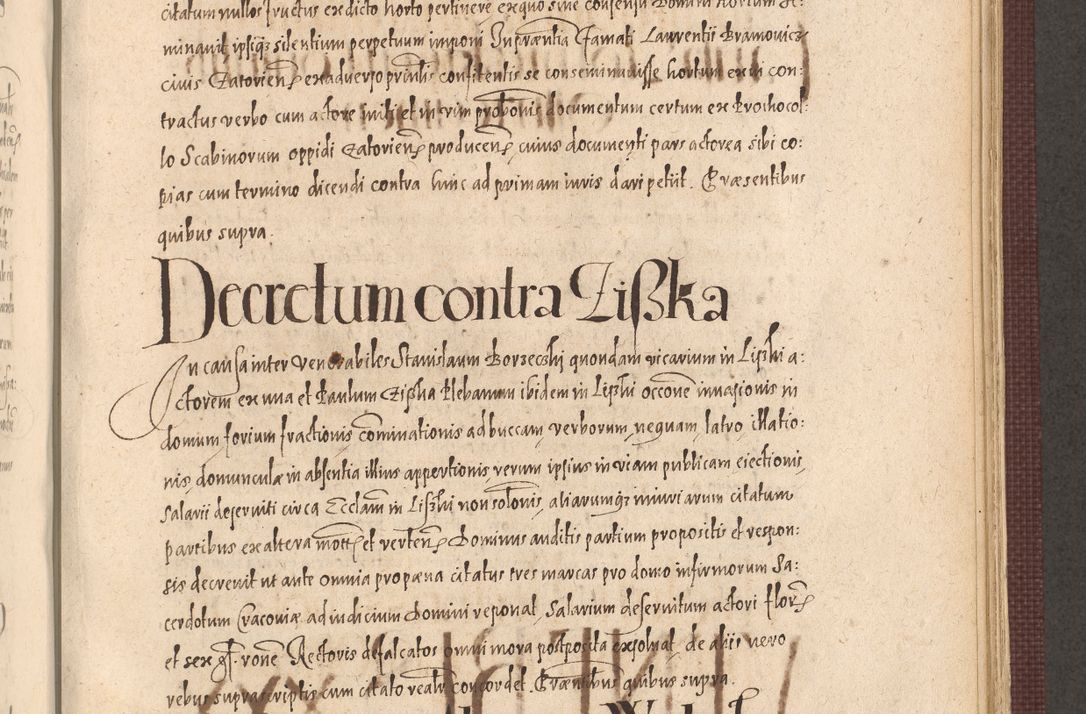 citatum nullos fructus ex dicto horto pertinere ex quo sine consensu Domini hortum se:
minauit ipsiq3 silentium perpetuum imponi Inpraentia famati Laurentii Bramowicz
ciuis Zatorien exaduerso prīntis confitentis se conseminauisse hortum ex vi con:
tractus verbo cum actore initi et in vim probonis documentum certum ex Prothocol:
lo Scabinorum oppidi Zatorien producen, cuius documenti pars actorea sibi co:
pias cum termino dicendi contra hinc ad primam iuris dari petiit. Praesentibus
quibus supra.
Decretum contra Zißka
In causa inter Venerabiles Stanislaum Borzecski quondam vicarium in Liszki a:
ctorem ex una et Paulum Zißka Plebanum ibidem in Liszki occōne inuasionis in
domum, forium fractionis cōminationis ad buccam, verborum, nequam, latro, illatio:
nis, domunculae in absentia illius apportionis, rerum ipsius in viam publicam eiectionis,
Salarii deseruiti circa Ecclam in Liszki non solōnis, aliarumq3 iniuriarum citatum
partibus ex altera mott et verten Dominus auditis partium propositis et respon:
sis decreuit ut ante omnia pro paena citatus tres marcas pro domo infirmorum Sa:
cerdotum Cracouiae ad iudicium Domini reponat, Salarium deseruitum actori flor
et sex gr. rōne Rectoris defalcatos omni mora postposita exsoluat, de aliis vero
rebus suprascriptis cum citato realr concordet. Praentibus quibus supra.